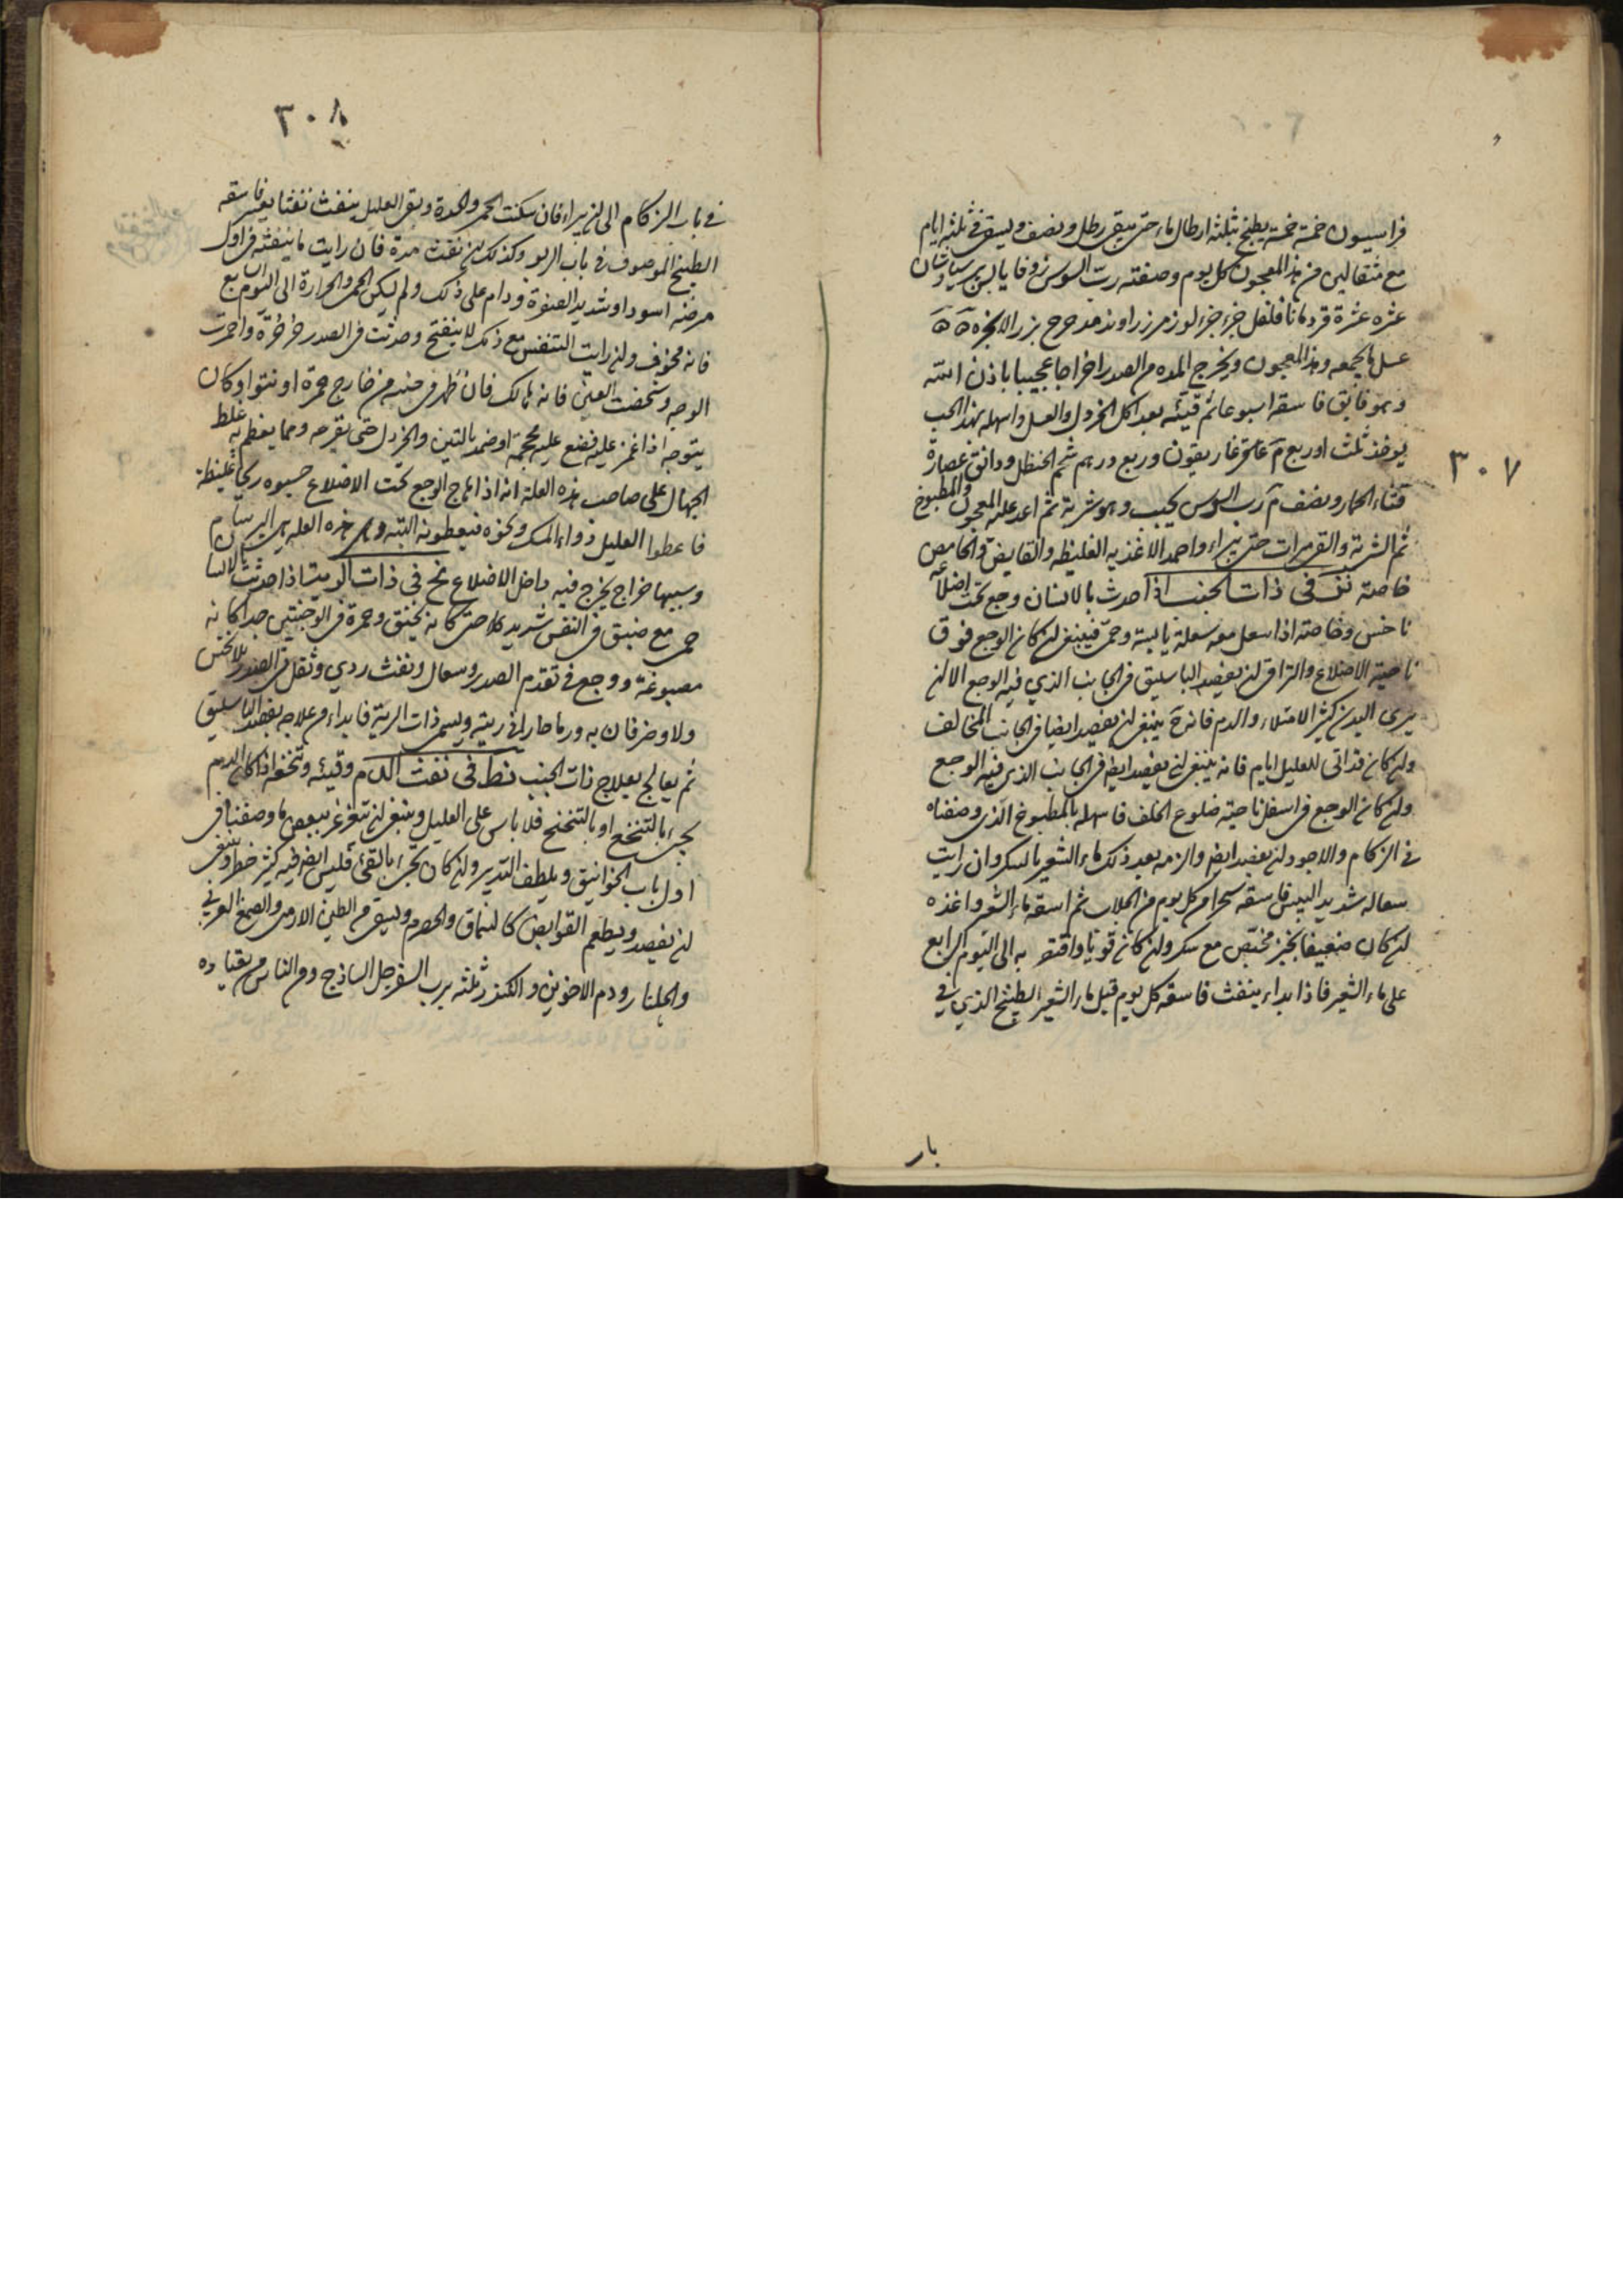 ٣٠٧
فراسيون خمسة خمسة يطبخ بثلثه ارطال ماء حتى يبقى رطل ونصف ويسقى في ثلثه ايام
مع مثقالين من هذا المعجون كل يوم وصفته رب السوس زوفا يابس برسياوشان
عشره عشرة قردمانا فلفل جزء جزء لوز مر زراوند مدحرج بزر الانجره
عسل ما يجمعه وهذا المعجون ويخرج المده من الصدر اخراجا عجيبا باذن الله
وهو فايق فاسقه اسبوعا ثم قيئه بعد اكل الخردل والعسل واسهله بهذا الحب
يوخذ ثلث اوربع غاريقون وربع درهم شحم الحنظل ودانق عصارة
قثاء الحمار ونصف رب السوس يحبب وهو شربة ثم اعد عليه المعجون والمطبوخ
ثم الشربة والقى مرات حتى يبراء واحمه الاغذيه الغليظه والقابض والحامض
خاصته في ذات الجنب اذا حدث بالانسان وجع تحت اضلاعه
ناخس وخاصته اذا سعل معه سعلة يابسة وحمى فينبغى ان كان الوجع فوق
ناحية الاضلاع والتراقى ان يفصد الباسليق في الجانب الذي فيه الوجع الا ان
يرى البدن كثير الامتلاء والدم فانه ينبغى ان يفصد ايضا في الجانب المخالف
وان كان قد اتى للعليل ايام فانه ينبغى ان يفصد ايضا في الجانب الذى فيه الوجع
وان كان الوجع فى اسفل ناحية ضلوع الخلف فاسهله بالمطبوخ الذى وصفناه
في الزكام والاجود ان يفصد ايضا والزمه بعد ذلك ماء الشعير بالسكر وان رايت
سعاله شديد اليبس فاسقه سحرا من كل يوم من الجلاب ثم اسقه ماء الشعير واغذه
ان كان ضعيفا بخبز مع سكر وان كان قويا به الى اليوم الرابع
على ماء الشعير فاذا بداء ينفث فاسقه كل يوم قبل ماء الشعير الطبيخ الذي في
بار
٣٠٨
في باب الزكام الى ان يبراء فان سكنت الحمى والحدة وبقى العليل ينفث نفثا يعسر فاسقه
الطبيخ الموصوف في باب الربو وكذلك ان نفث مدة فان رايت ما ينفثه فى اول
مرضه اسود اوشديد الصفرة ودام على ذلك ولم يسكن الحمى والحرارة الى اليوم السابع
فانه مخوف وان رايت التنفس مع ذلك لا ينفتح وحدثت فى الصدر خرخرة واحمرت
الوجه وشخصت العين فانه هالك فان ظهر في جنبه من خارج حمرة او نتوا وكان
يتوجع اذا غمز عليه فضع عليه محجمة اوضمد بالتين والخردل حتى يقرحه ومما يعظم به غلط
الجهال على صاحب هذه العلة انه اذا هاج الوجع تحت الاضلاع حسبوه ريحا غليظة
فاعطوا العليل دواء المسك ونحوه فيعطونه البته وهذه العله هى البرسام
وسببها خراج يخرج فيه داخل الاضلاع في ذات الرية اذا حدثت بالانسان
حمى مع ضيق فى النفس شديد حتى كانه يختنق وحمرة فى الوجنتين جدا كانه
مصبوغة ووجع في تقدم الصدر وسعال ونفث ردي وثقل في الصدر بلا نخس
ولا وخز فان به ورما حارا فى ريته ويسمى ذات الرية فابداء من علاجه بفصد الباسليق
ثم يعالج بعلاج ذات الجنب في نفث الدم وقيئه وتنخعه اذا كان الدم
يجىء بالتنخع او بالتنحنح فلا باس على العليل وينبغى ان يتغرغر ببعض ما وصفنا في
اول باب الخوانيق ويلطف التدبير وان كان يجىء بالقى فليس ايضا فيه كثير خطر وينبغى
ان يفصد ويطعم القوابض كالسماق والحصرم ويسقى من الطين الارمنى والصمغ العربي
والجلنار ودم الاخوين والكندر ثلثه برب السفرجل الساذج ومن الناس من يعتاده